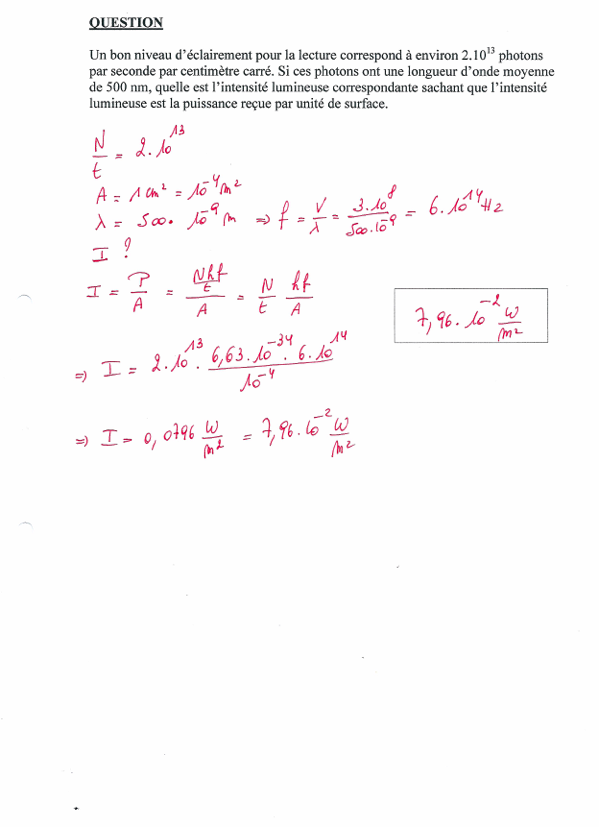 QUESTION
Un bon niveau d'éclairement pour la lecture correspond à environ 2.10¹³ photons
par seconde par centimètre carré. Si ces photons ont une longueur d'onde moyenne
de 500 nm, quelle est l'intensité lumineuse correspondante sachant que l'intensité
lumineuse est la puissance reçue par unité de surface.
N/t = 2.10¹³
A = 1 cm² = 10⁻⁴ m²
λ = 500. 10⁻⁹ m => f = V/λ = 3.10⁸/500.10⁻⁹ = 6.10¹⁴ Hz
I ?
I = P/A = (Nhf/t)/A = N/t hf/A
7,96.10⁻² W/m²
=> I = 2.10¹³ . 6,63.10⁻³⁴ . 6.10¹⁴/10⁻⁴
=> I = 0,0796 W/m² = 7,96.10⁻² W/m²